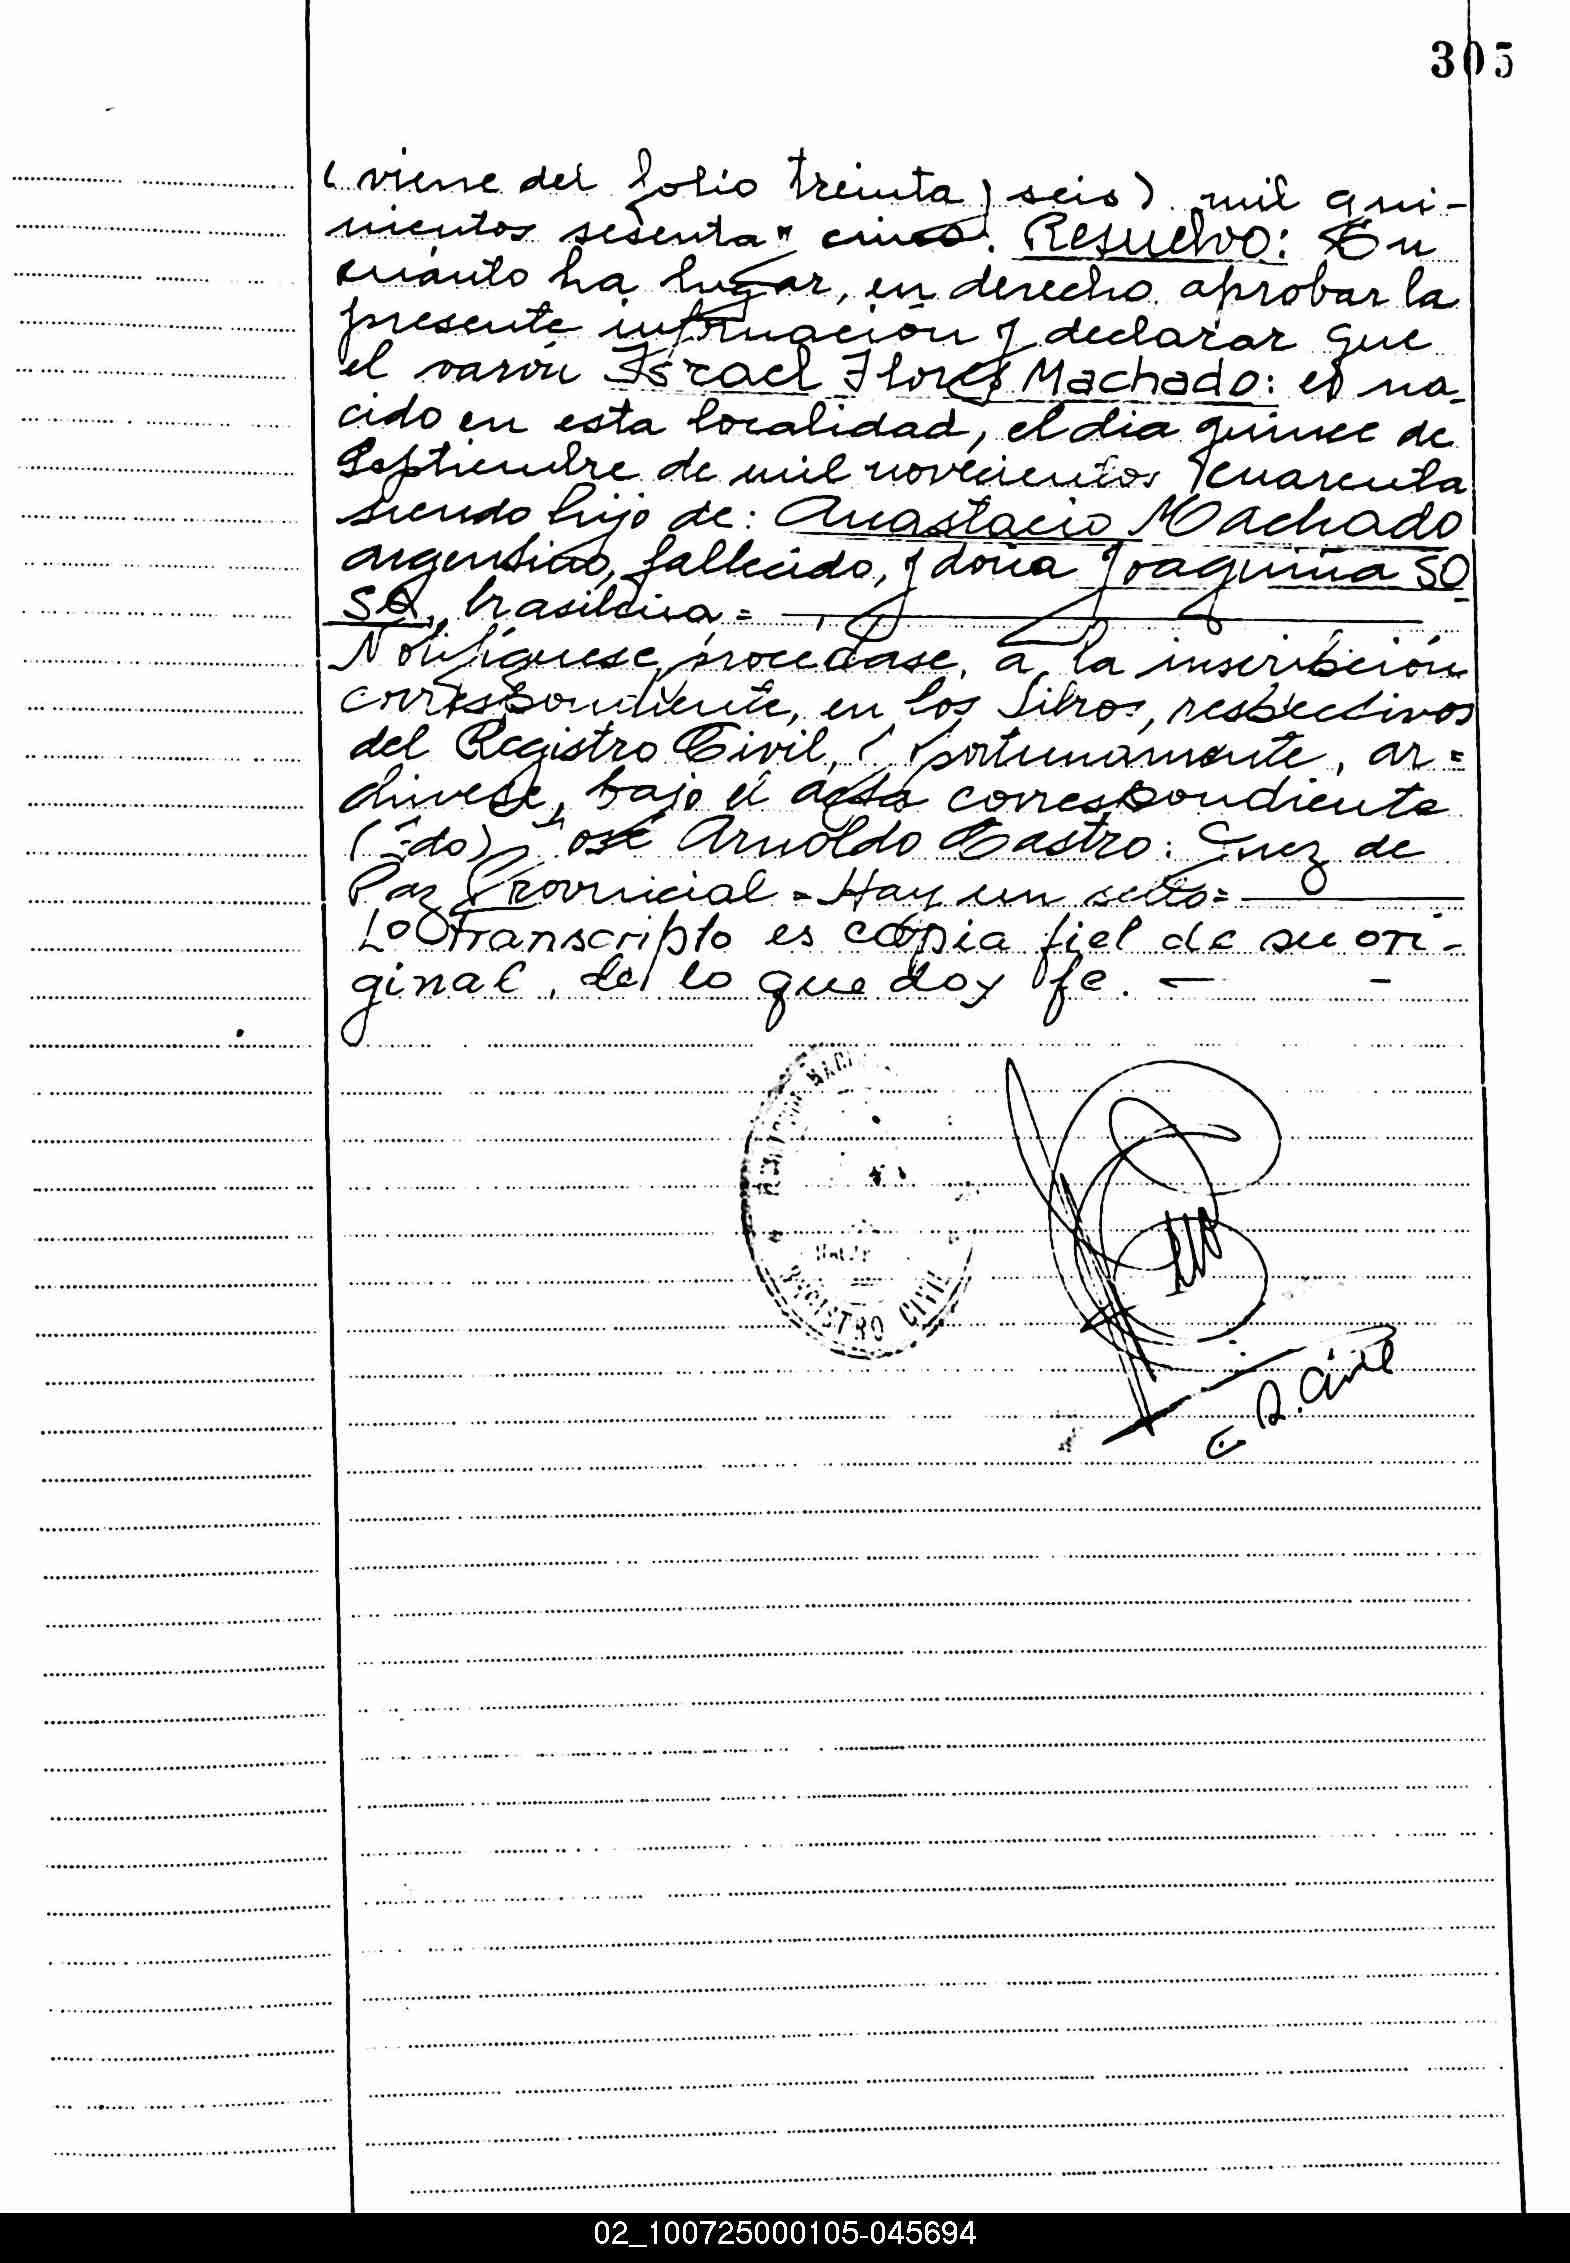 305
(viene del folio treinta y seis) mil qui-
nientos sesenta y cinco. Resuelvo: En
cuanto ha lugar, en derecho, aprobar la
presente información y declarar que
el varón Israel Flores Machado: es na-
cido en esta localidad, el dia quince de
Septiembre de mil novecientos cuarenta
siendo hijo de: Anastacio Machado
argentino, fallecido, y doña Joaquina SO
SA, brasileira =
Notifíquese, procedase, a la inscribción
correspondiente, en los Libros, respectivos
del Registro Civil, y oportunamente, ar=
chivese, bajo el acta correspondiente
(Fdo) José Arnoldo Castro: Juez de
Paz Provincial = Hay un sello=
Lo transcripto es copia fiel de su ori-
ginal, de lo que doy fe. —
REGISTRO CIVIL
E. R. Civil
02_100725000105-045694